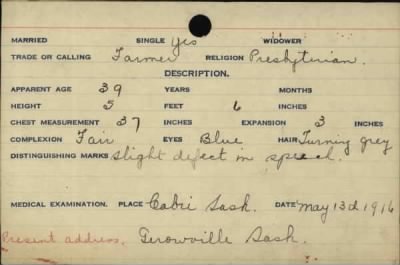 MARRIED SINGLE yes WIDOWER
TRADE OR CALLING Farmer RELIGION Presbyterian.
DESCRIPTION.
APPARENT AGE 39 YEARS MONTHS
HEIGHT 5 FEET 6 INCHES
CHEST MEASUREMENT 37 INCHES EXPANSION 3 INCHES
COMPLEXION Fair EYES Blue HAIR Turning grey
DISTINGUISHING MARKS Slight defect in speech.
MEDICAL EXAMINATION. PLACE Cabri Sask. DATE May 13th 1916
Present address. Gerowville Sask.